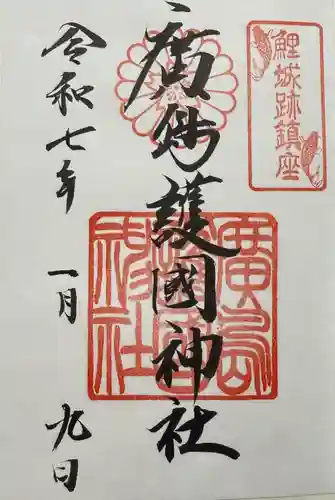 鯉城跡鎮座
廣島護國神社
廣島護國神社
令和七年 一月 九日